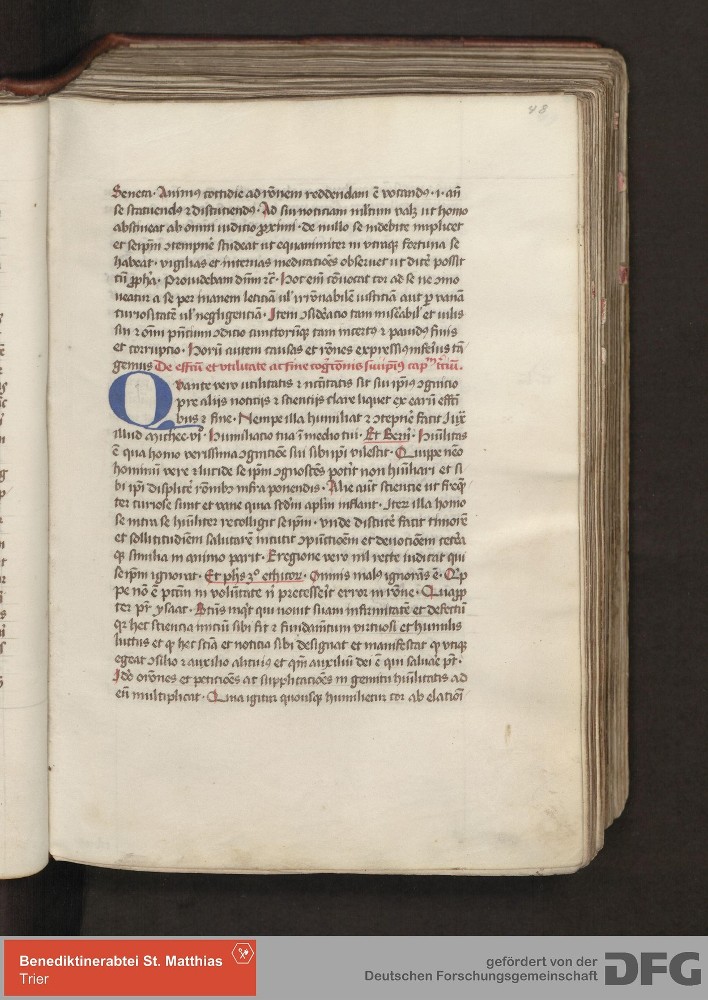 48
Seneca · Animꝯ cottidie ad rōnem reddendam ē vocandꝯ · i · an̄
se statuendꝯ ⁊ discutiendꝯ · Ad sui noticiam ml̄tum valꝫ ut homo
abstineat ab omni iudicio proximi · de nullo se indebite implicet
et seip̄m ꝯtempn̄e studeat ut equanimiter in vtraqꝫ fortuna se
habeat · vigilias et internas meditacōes obseruet ut dicē possit
cū ꝓph̄a · Prouidebam dn̄m ⁊c̄ · Hoc eni᷒ cōuocat cor ad se ne ꝯmo
ueatur a se per inanem leticiā ul' irrōnabilē iusticiā aut ꝑ vanā
curiositatē ul' negligenciā · Item ꝯsid̄acio tam mis̄abil' et uilis
sui ⁊ oīm pn̄cium ꝯdicio cunctorūqꝫ tam incertꝯ ⁊ pauidꝯ finis
et corrupcio · Horū autem causas et rōnes expressiꝯ inferiꝯ tā
gemus De effcū et vtilitate ac fine coḡcōnis sui ip̄iꝯ cap̄m tr̄ciū ·
Qvante vero vtilitatis ⁊ nc̄citatis sit sui ip̄iꝯ ꝯgnicio
pre alijs noticijs ⁊ sciencijs clare liquet ex earū effcī
bus ⁊ fine · Nempe illa humiliat ⁊ ꝯtepne facit Iux
illud Michee · vi° · Humiliacio tua ī medio tui · Et Bern̄ · Hūilitas
ē qua homo verissima ꝯgnicōe sui sibi ip̄i vilescit · Quippe nēo
hominū vere ⁊ lucide se ip̄m ꝯgnoscēs pot̄it non hūiliari et si
bi ip̄i displic̄e cōmbꝯ infra ponendis · Alie aūt sciencie ut freq̄n
ter curiose sunt et vane quia scd̄m ap̄lm inflant · Iter illa homo
se intra se hūiliter recolligit seip̄m · vnde discut̄e facit timorē
et sollicitudiem salutarē incutit ꝯpūctiōem et deuociōem cetāqꝫ
qꝫ similia in animo parit · E regione vero nil recte iudicat qui
seip̄m ignorat · Et ph̄s 3° ethicor · Omnis malꝯ ignorās ē · Qip
pe nō ē pctm̄ in volūtate n̄ precessīt error in rōne · Quapp
ter pr̄ ysaac · Btūs inq̄t qui nouit suam infirmitatē et defectū
qꝛ hec sciencia iniciū sibi fit ⁊ fundamētum virtuosi et humilis
luctus et qꝫ hec scīa et noticia sibi designat et manifestat qꝫ vtiqꝫ
egeat ꝯsilio ⁊ auxilio alicuiꝯ et qm̄ auxiliū dei ē qui saluare pt̄ ·
Ido orōnes et peticiōes ac supplicaciōes in gemitu hūilitatis ad
eū multiplicat · Qua igitur quousqꝫ humilietur cor ab elaciōī
Benediktinerabtei St. Matthias
Trier
gefördert von der
Deutschen Forschungsgemeinschaft
DFG